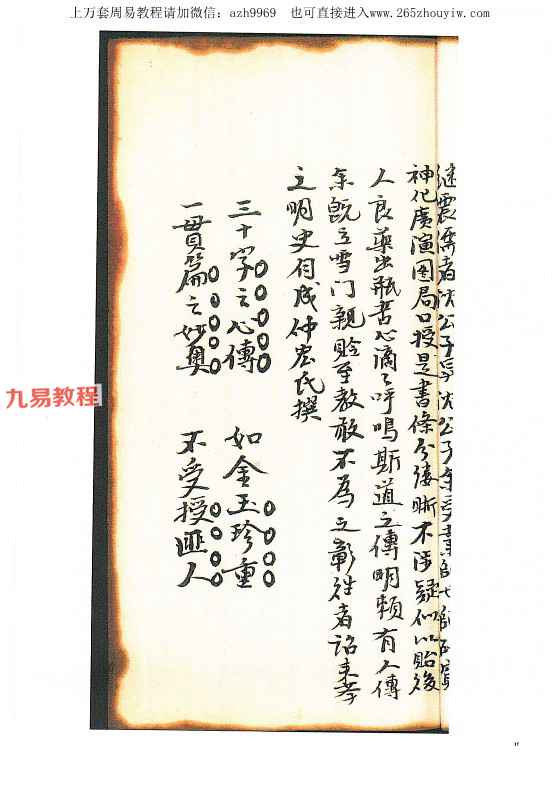 上万套周易教程请加微信：azh9969 也可直接进入www.265zhouyiw.com
神化廣演圖局口授是書條分縷晰不涉疑似以貽後
人良藥出瓶苦心滴々呼鳴斯道之傳明賴有人傳
余既立雪门親聆至教敢不為之彰往者詔来孝
之明史自成仲宏氏撰
三十字之心傳 如金玉珍重
一貫篇之妙奥 不受授匪人
九易教程